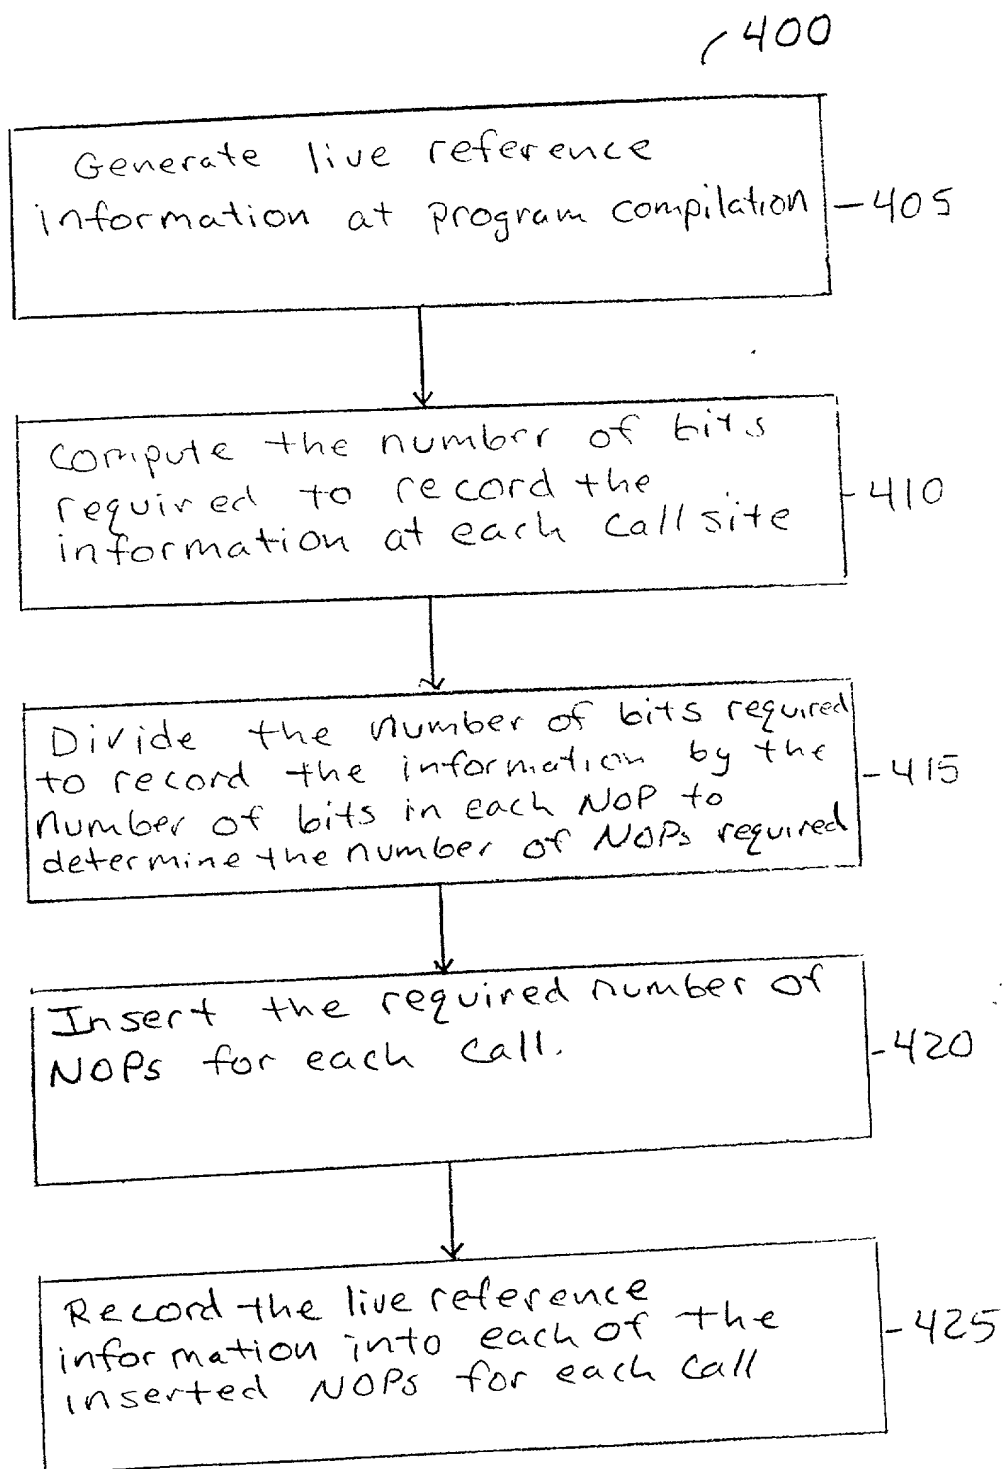 400
Generate live reference
information at program compilation
405
Compute the number of bits
required to record the
information at each call site
410
Divide the number of bits required
to record the information by the
number of bits in each NOP to
determine the number of NOPs required
415
Insert the required number of
NOPs for each call.
420
Record the live reference
information into each of the
inserted NOPs for each call
425